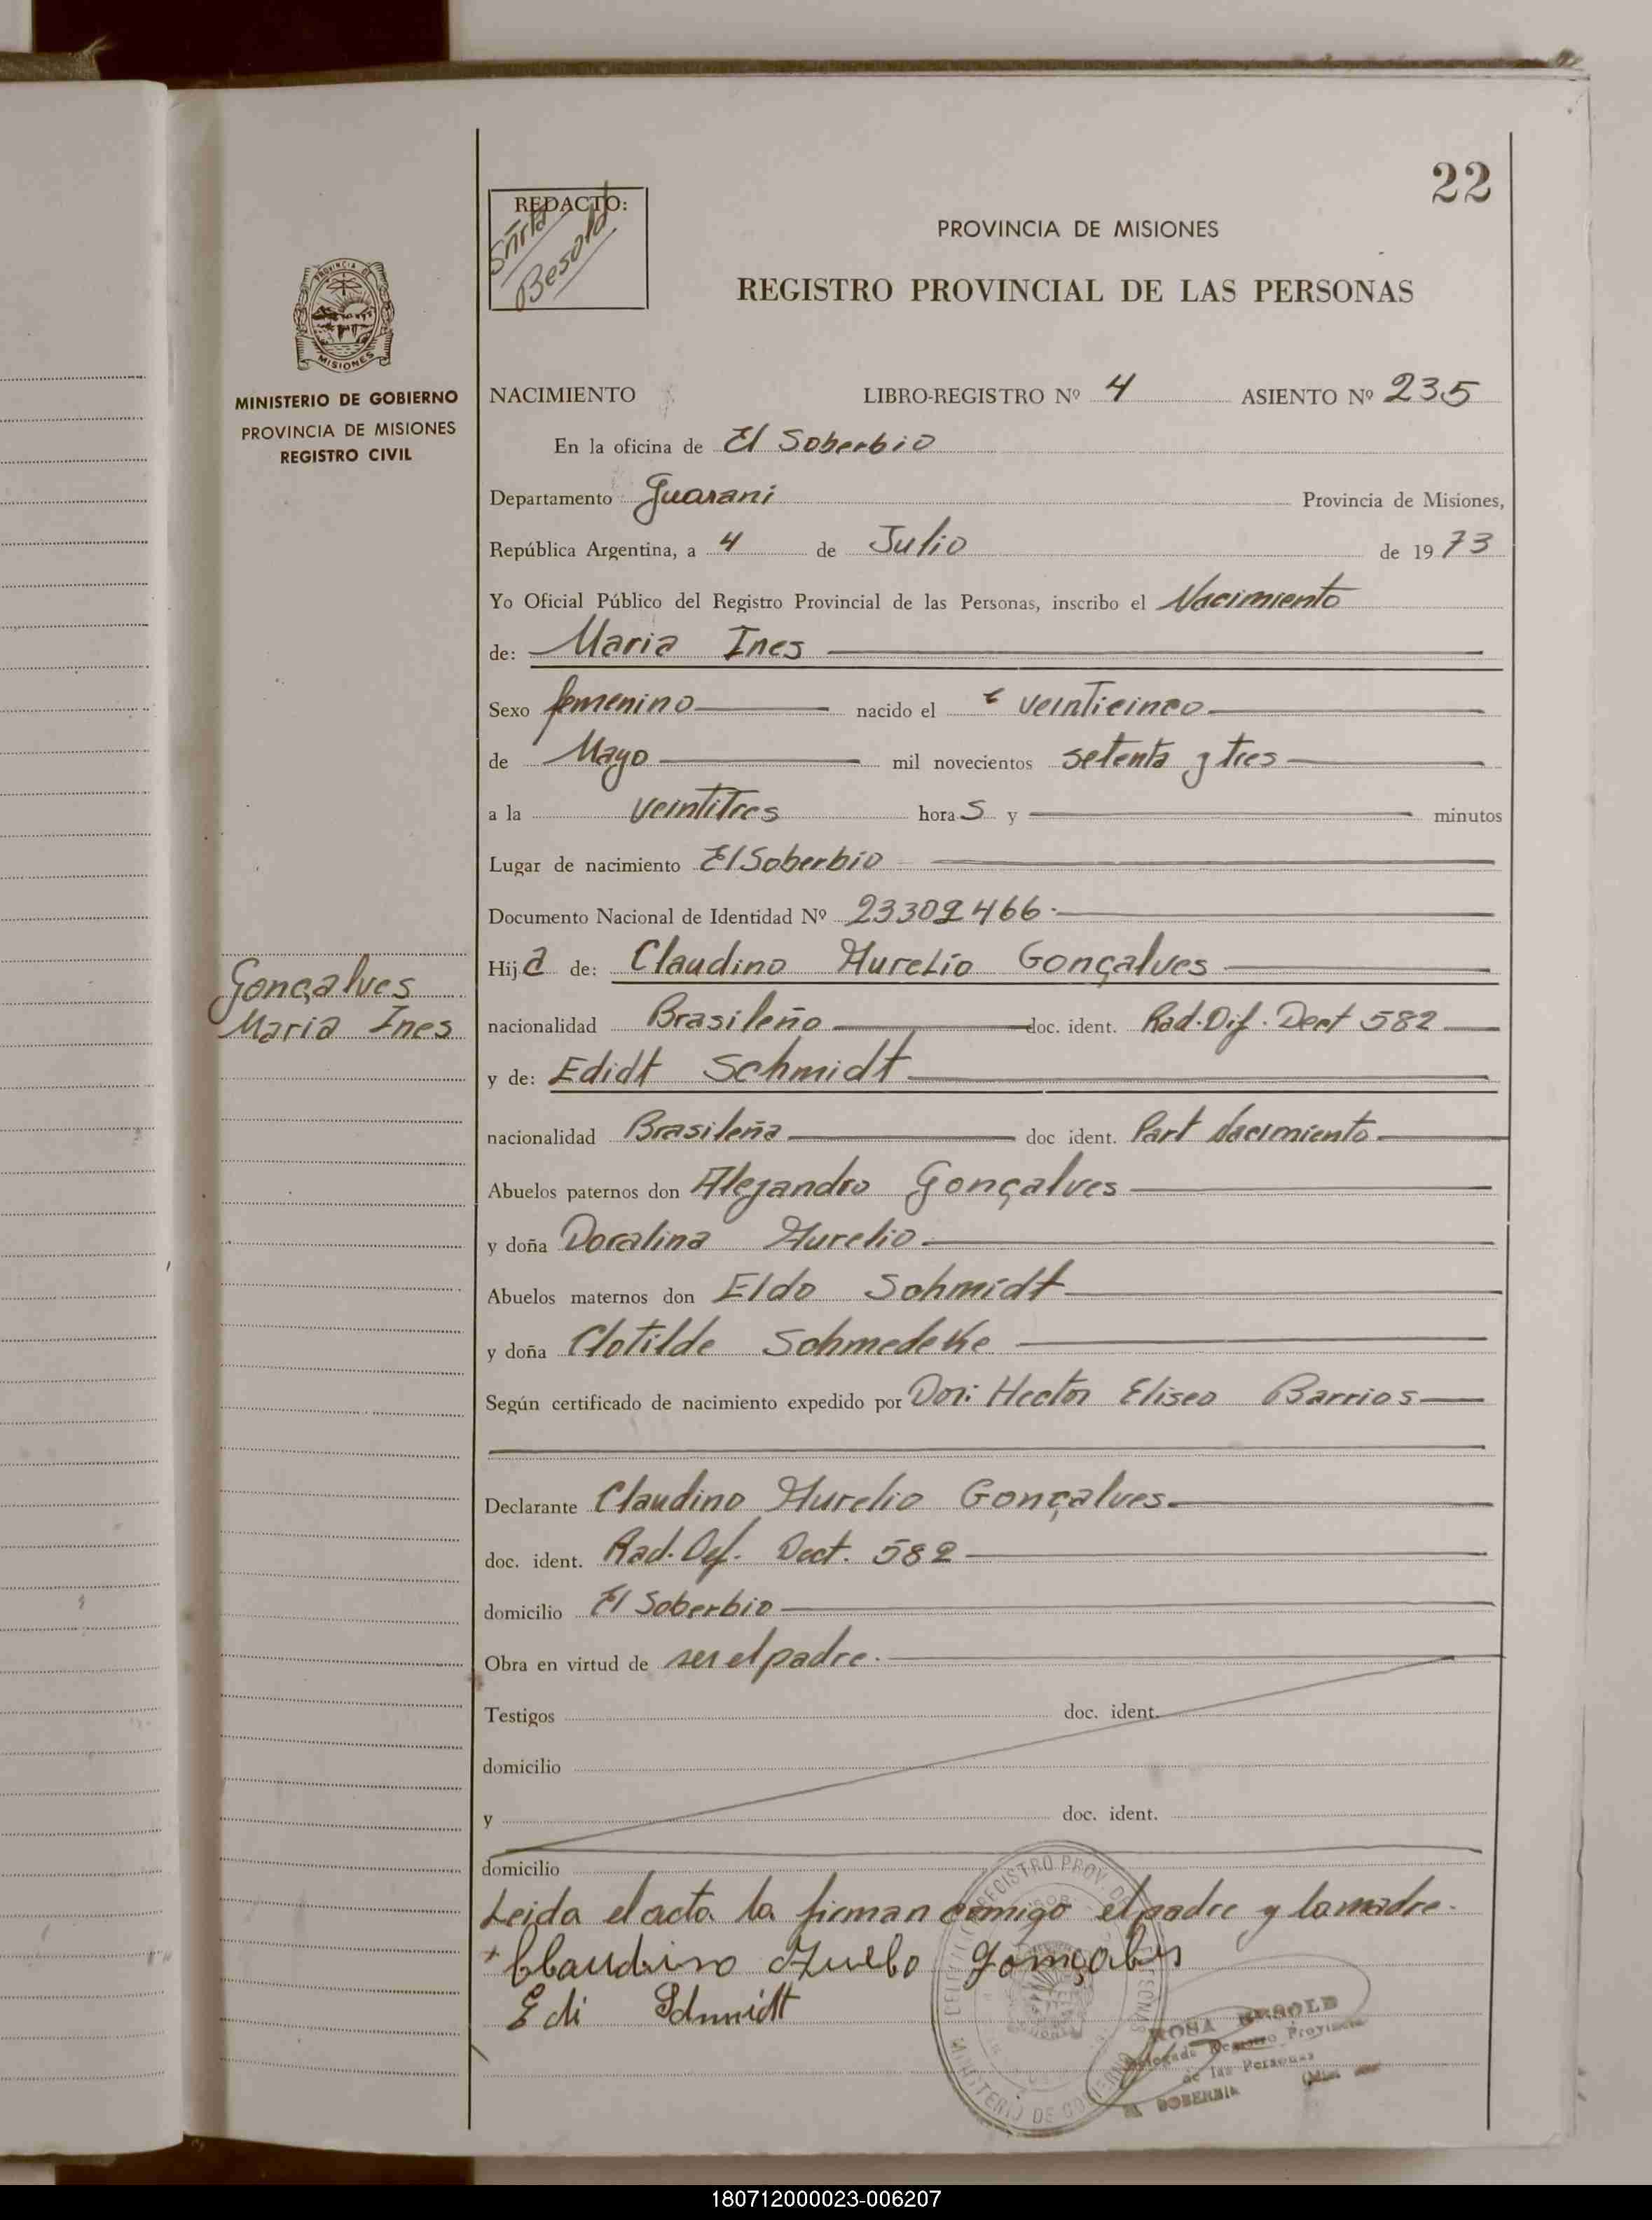 22
REDACTO:
Srta
Besold
PROVINCIA DE MISIONES
REGISTRO PROVINCIAL DE LAS PERSONAS
PROVINCIA DE
MISIONES
MINISTERIO DE GOBIERNO
PROVINCIA DE MISIONES
REGISTRO CIVIL
NACIMIENTO LIBRO-REGISTRO Nº 4 ASIENTO Nº 235
En la oficina de El Soberbio
Departamento Guarani Provincia de Misiones,
República Argentina, a 4 de Julio de 1973
Yo Oficial Público del Registro Provincial de las Personas, inscribo el Nacimiento
de: Maria Ines
Sexo femenino nacido el veinticinco
de Mayo mil novecientos setenta y tres
a la veintitres horas y minutos
Lugar de nacimiento El Soberbio
Documento Nacional de Identidad Nº 23302466.
Hija de: Claudino Aurelio Gonçalves
Gonçalves
Maria Ines
nacionalidad Brasileño doc. ident. Rad. Dif. Dect 582
y de: Edidt Schmidt
nacionalidad Brasileña doc ident. Part Nacimiento
Abuelos paternos don Alejandro Gonçalves
y doña Doralina Aurelio
Abuelos maternos don Eldo Schmidt
y doña Clotilde Schmedeke
Según certificado de nacimiento expedido por Don: Hector Eliseo Barrios
Declarante Claudino Aurelio Gonçalves
doc. ident. Rad. Def. Dect. 582
domicilio El Soberbio
Obra en virtud de ser el padre.
Testigos doc. ident.
domicilio
y doc. ident.
domicilio
Leida el acta la firman comigo el padre y la madre.
Claudino Gonçalves
Edi Schmidt
REGISTRO PROV. DE
MINISTERIO DE GOBIERNO
ROSA BESOLD
Delegada Registro Provincial
de las Personas
EL SOBERBIO
180712000023-006207